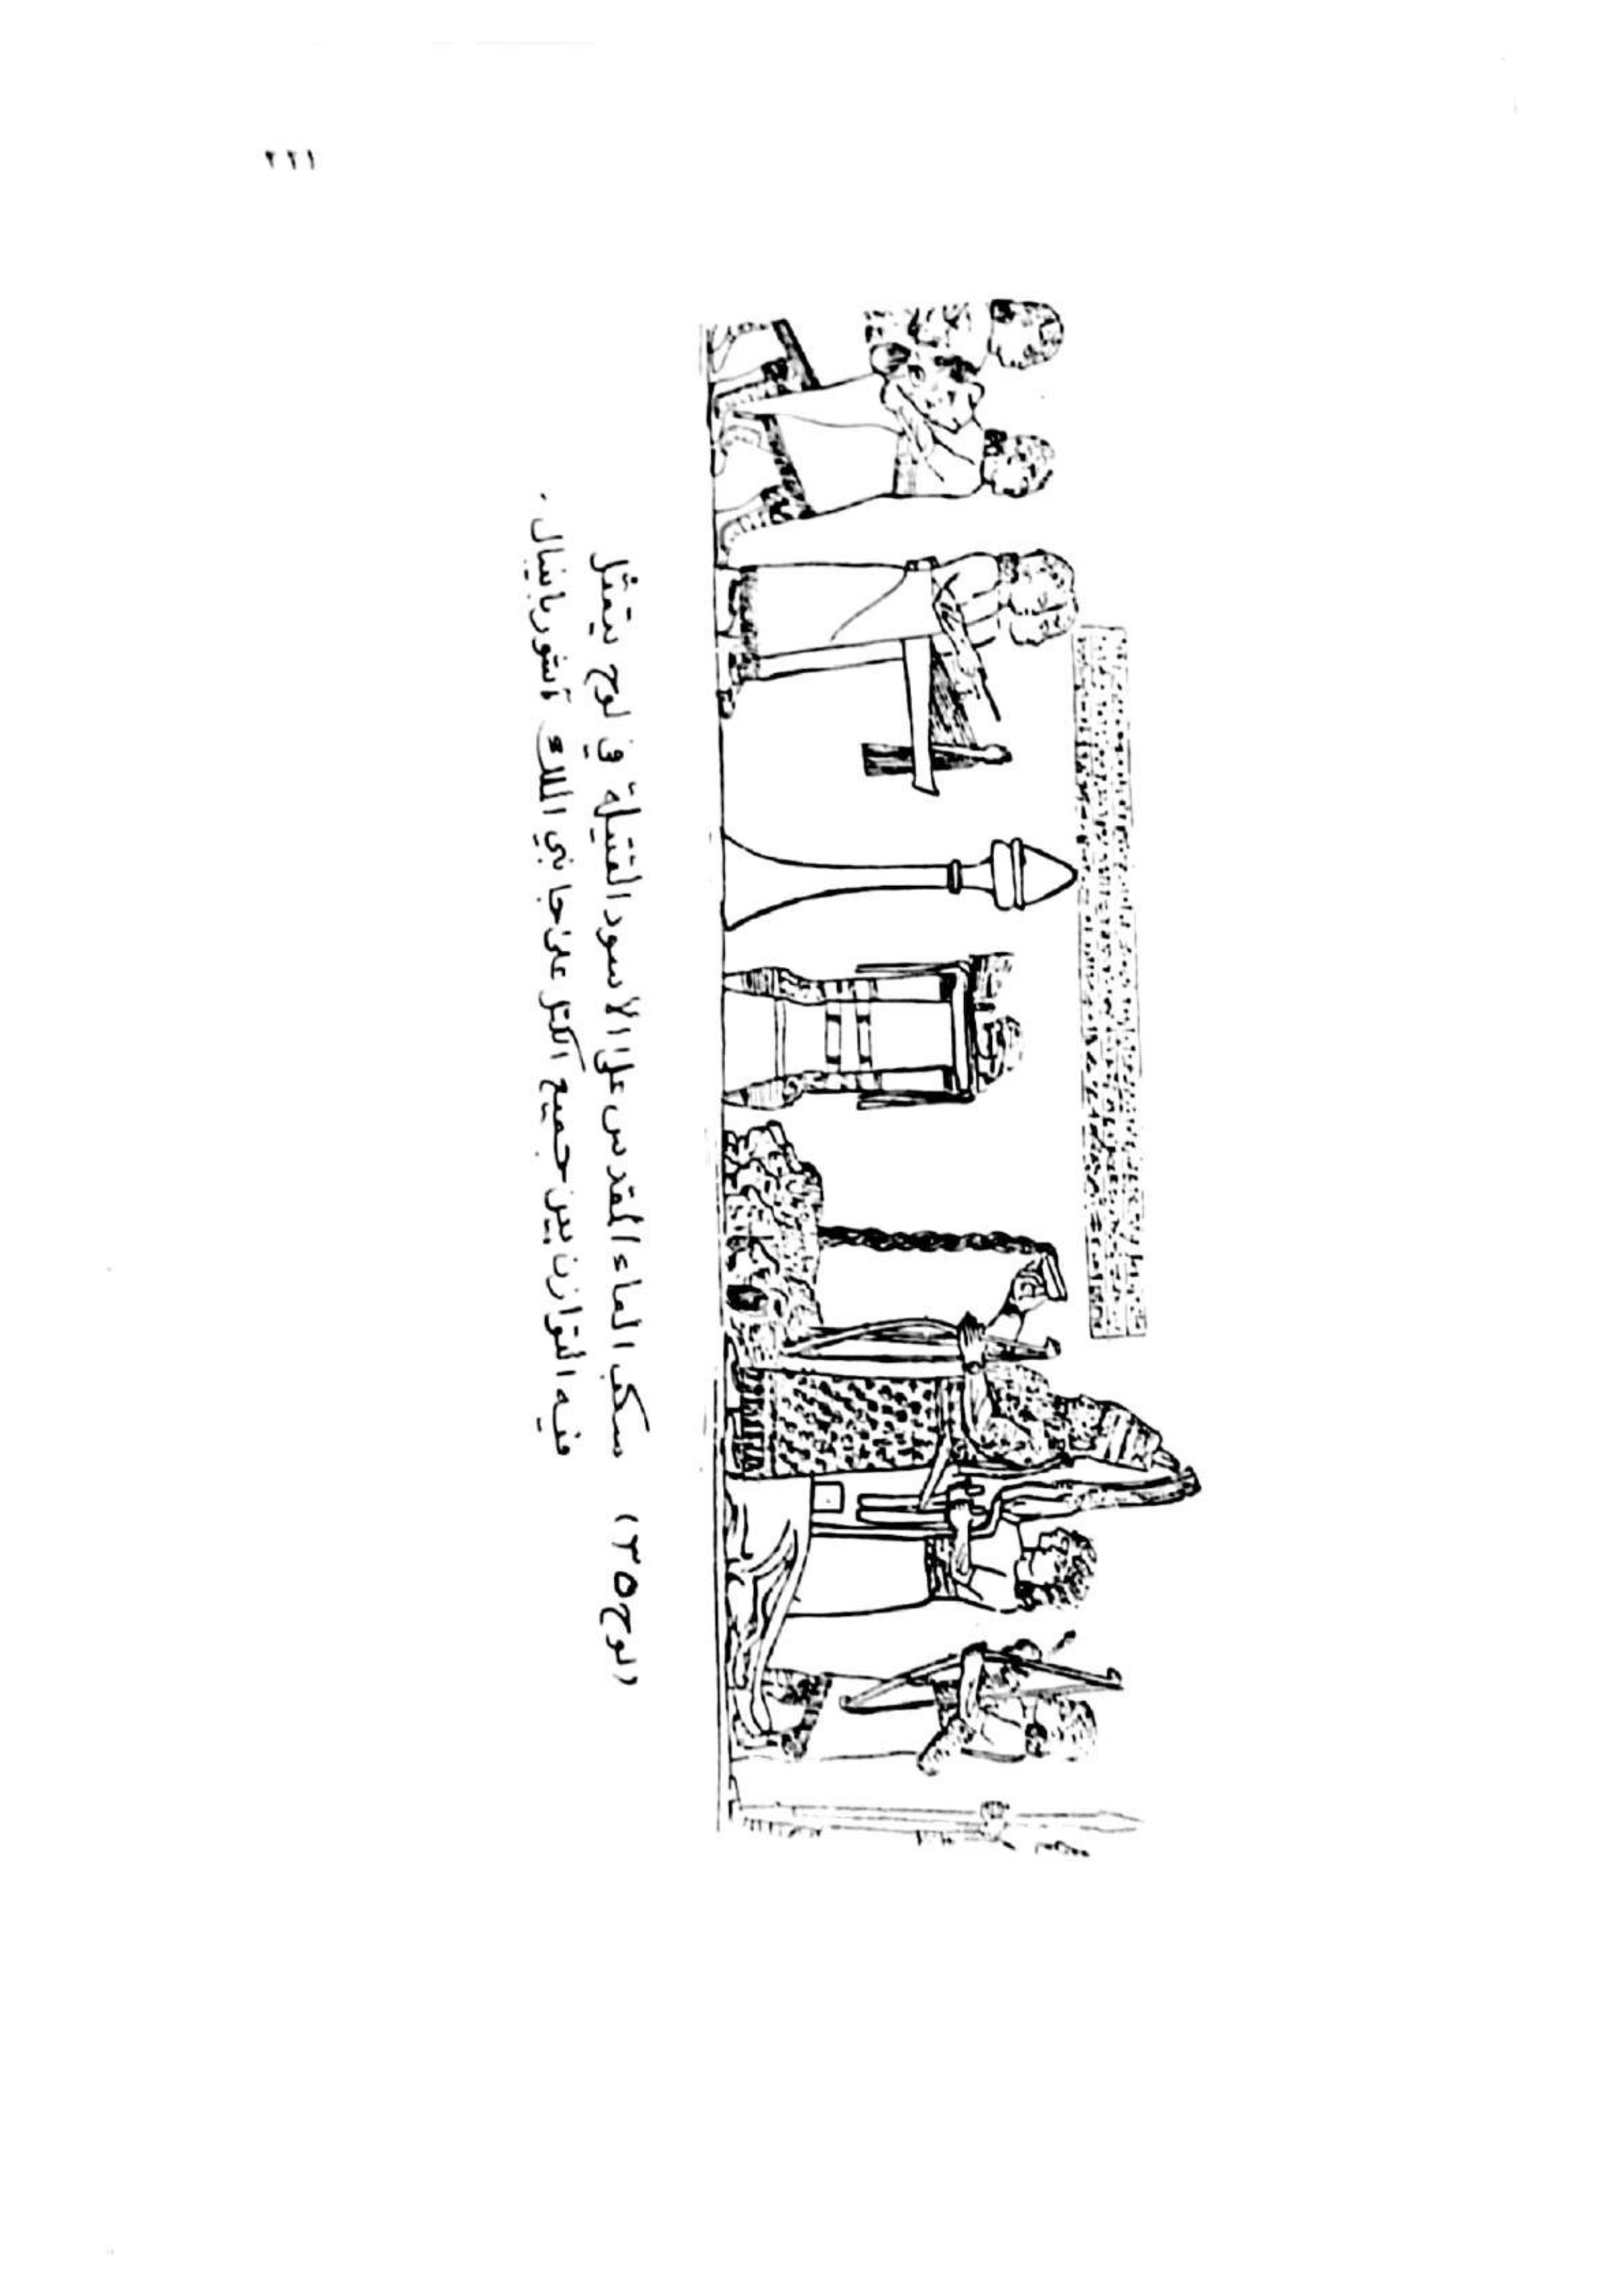 ٢٢١
(لوح ٣٥) سكب الماء المقدس على الاسود القتيلة في لوح يتمثل
فيه التوازن بين جميع الكتل على جانبي الملك آشور بانيبال .